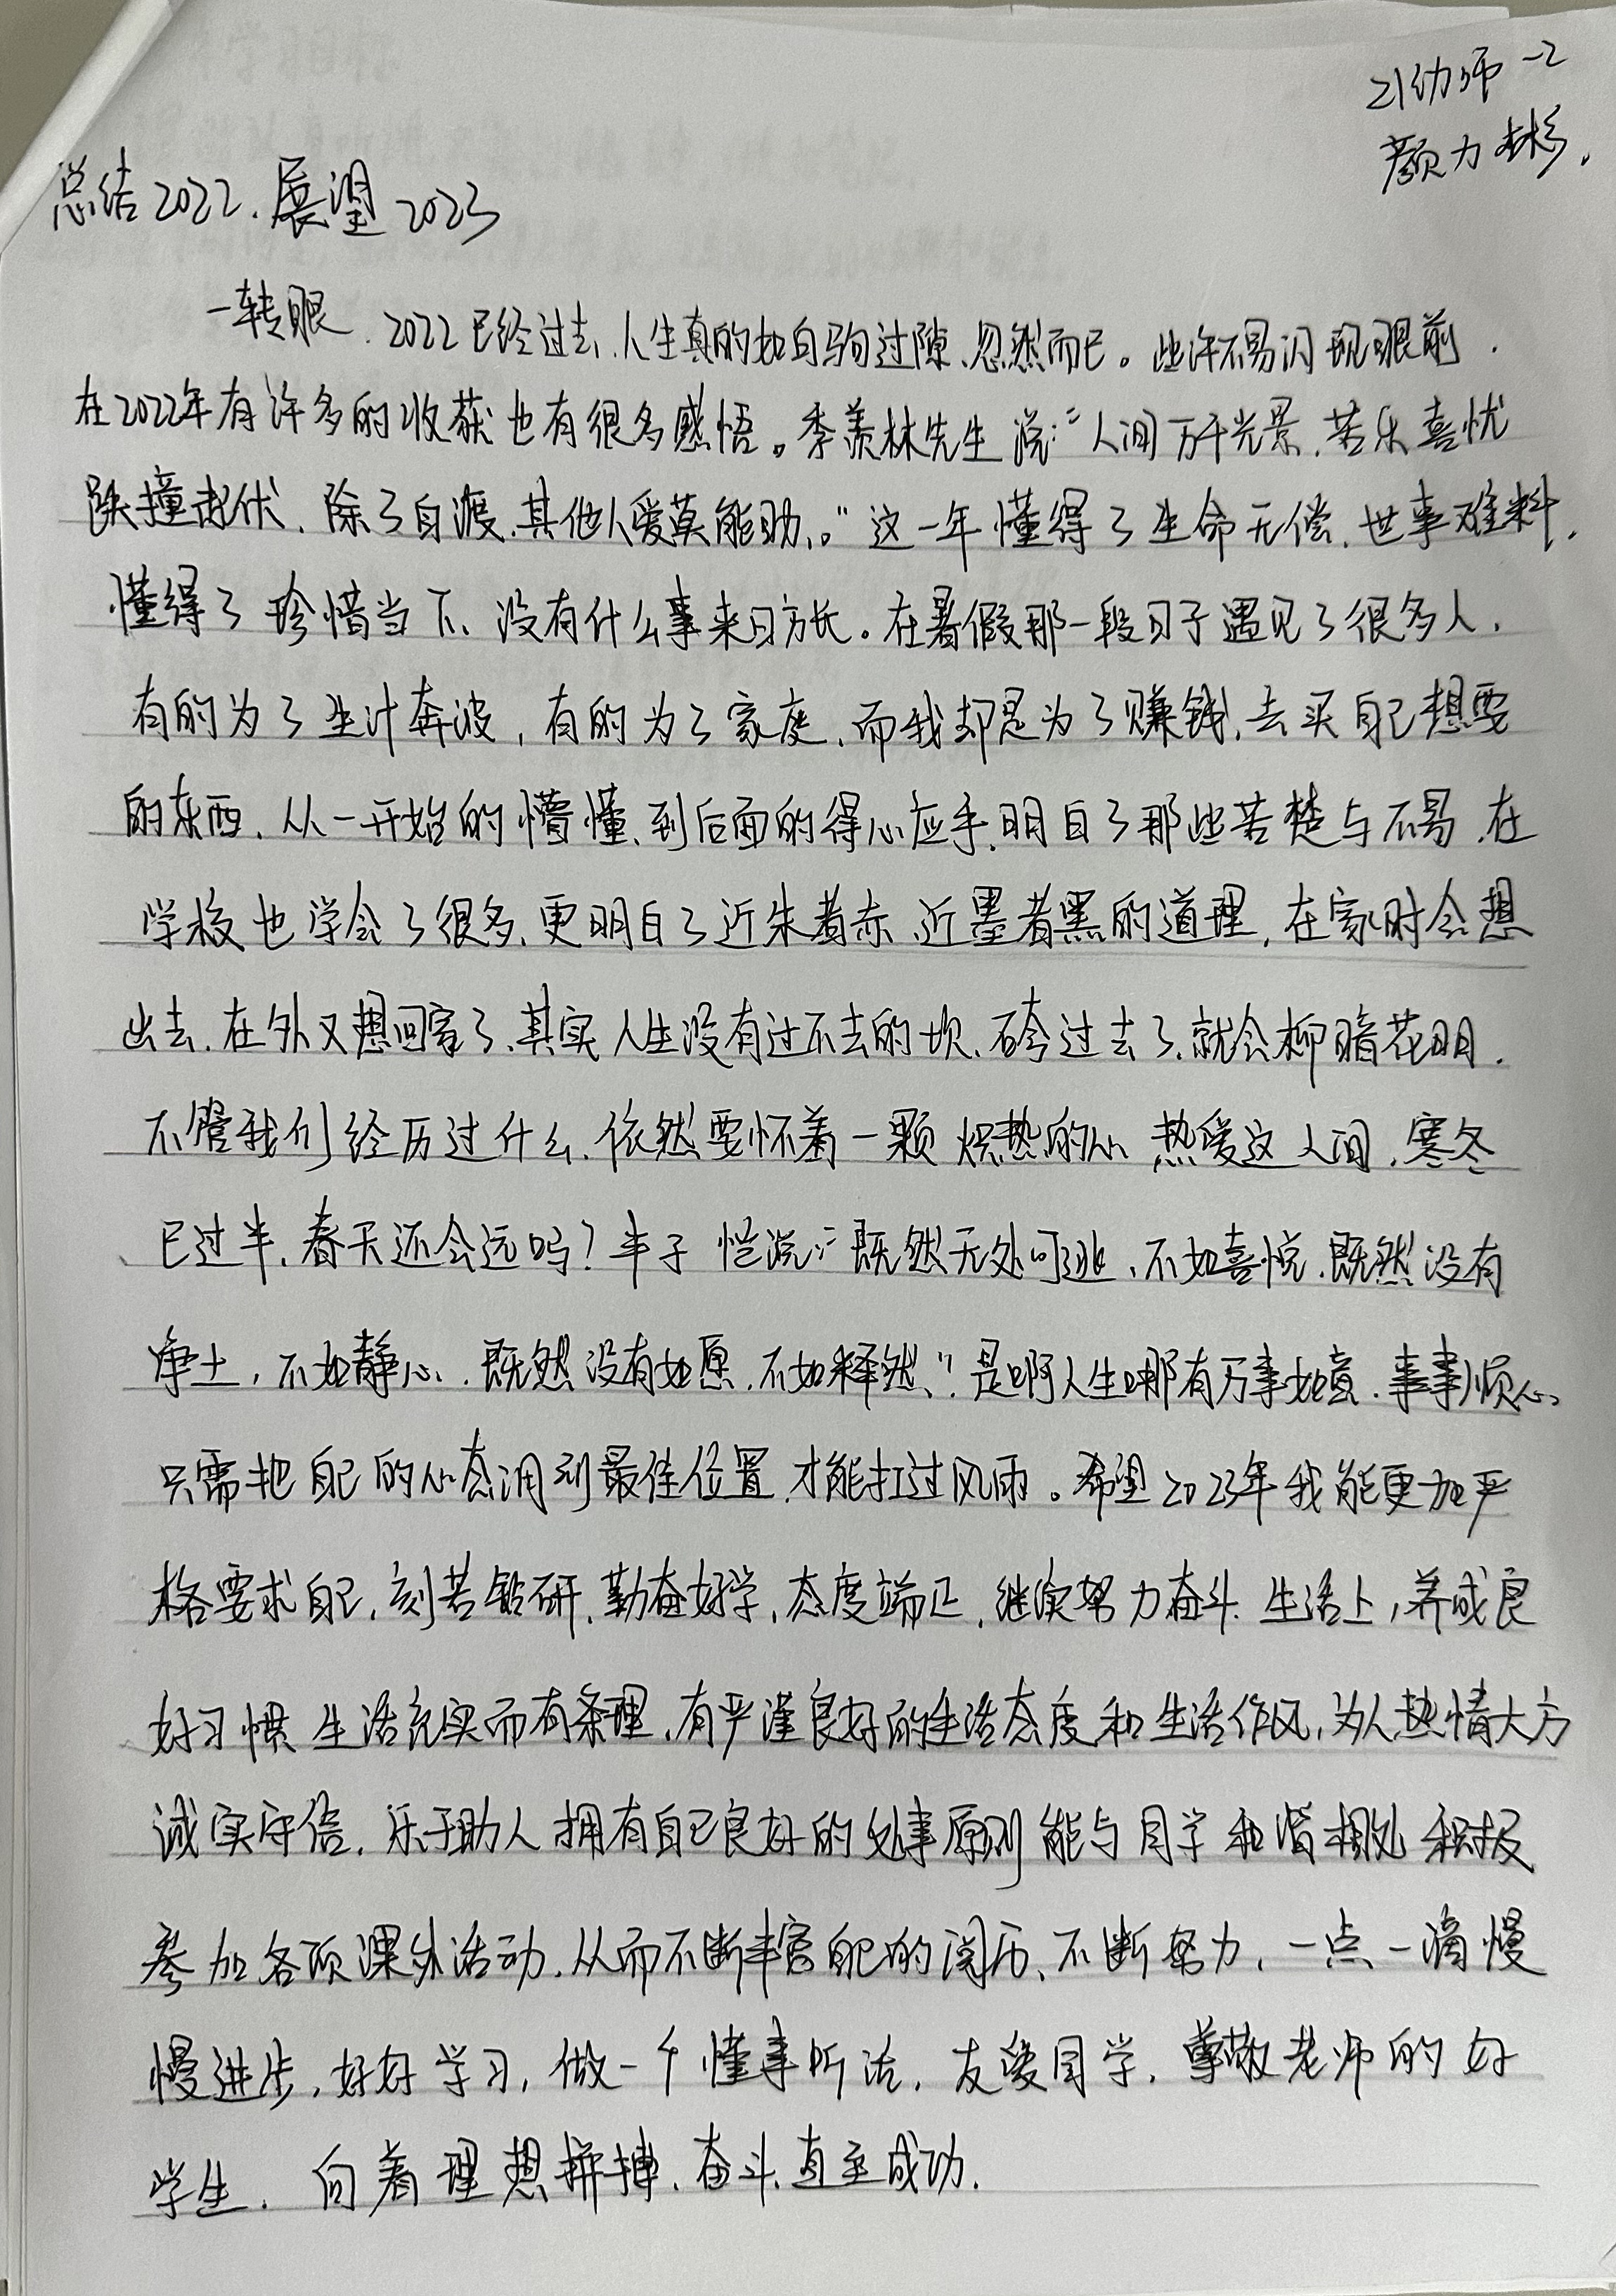 21幼师-2
颜力彬.
总结2022.展望2023
一转眼.2022已经过去,人生真的如白驹过隙、忽然而已。些许不易闪现眼前.
在2022年有许多的收获也有很多感悟。季羡林先生说:“人间万千光景.苦乐喜忧
跌撞起伏.除了自渡.其他人爱莫能助.。”这一年懂得了生命无偿.世事难料.
懂得了珍惜当下、没有什么事来日方长。在暑假那一段日子遇见了很多人.
有的为了生计奔波,有的为了家庭.而我却是为了赚钱,去买自己想要
的东西.从一开始的懵懂.到后面的得心应手.明白了那些苦楚与不易.在
学校也学会了很多.更明白了近朱者赤.近墨者黑的道理,在家时会想
出去.在外又想回家了.其实人生没有过不去的坎.跨过去了.就会柳暗花明.
不管我们经历过什么.依然要怀着一颗炽热的心热爱这人间.寒冬
已过半.春天还会远吗?丰子恺说:“既然无处可逃、不如喜悦.既然没有
净土,不如静心.既然没有如愿.不如释然、”.是啊人生哪有万事如意.事事顺心、
只需把自己的心态调到最佳位置.才能扛过风雨。希望2023年我能更加严
格要求自己,刻苦钻研.勤奋好学,态度端正,继续努力奋斗.生活上,养成良
好习惯 生活充实而有条理.有严谨良好的生活态度和生活作风,为人热情大方
诚实守信.乐于助人 拥有自己良好的处事原则 能与同学和谐相处 积极
参加各项课外活动.从而不断丰富自己的阅历、不断努力,一点一滴慢
慢进步,好好学习,做一个懂事听话,友爱同学,尊敬老师的好
学生.向着理想拼搏.奋斗.直至成功.